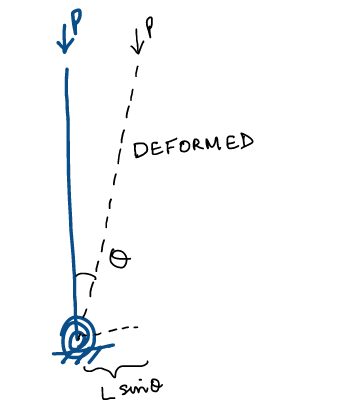 P
P
DEFORMED
θ
L sinθ